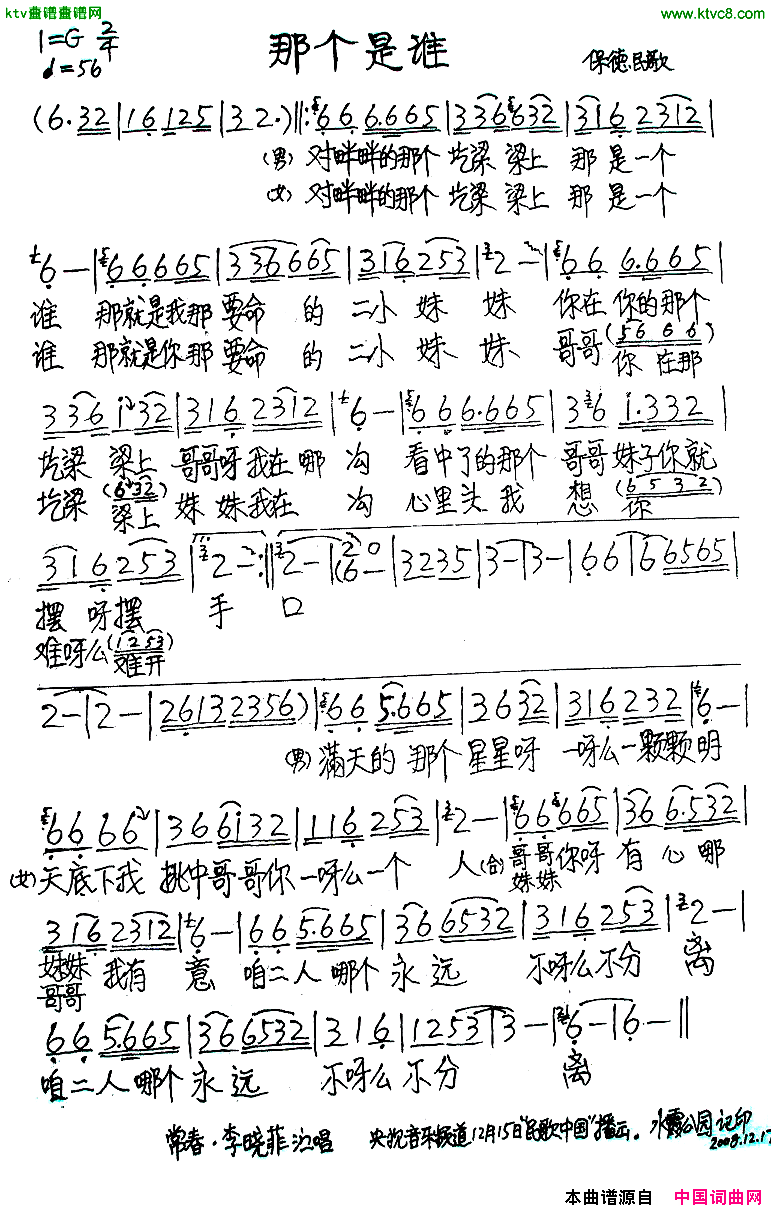 ktv曲谱曲谱网 www.ktvc8.com
1=G 2/4
♩=56
那个是谁
保德民歌
(6.32|16 125|32.)||:66 6.665|336632|316 2312|
(男) 对畔畔的那个 圪梁 梁上 那是一个
(女) 对畔畔的那个 圪梁 梁上 那是一个
6—|66665|336665|316253|2—|66 6.665|
谁 那就是我那 要命 的 二小妹 妹 你在 你的那个
谁 那就是你那 要命 的 二小妹 妹 哥哥(56 6 6)
你 在那
336 i32|316 2312|6—|66 6.665|36 i.332|
圪梁 梁上 哥哥呀我在哪 沟 看中了的那个 哥哥 妹子你就
圪梁 (6i32) 妹 妹我在 沟 心里头我 想 (6532)
梁上 你
316 253|2—:||2—|2 0 (6—|3235|3—|3—|66|6 6565|
摆 呀摆 手 口
难呀么(1253)
难开
2—|2—|26132356)|66 5.665|3632|316 232|6—|
(男) 满天的 那个 星星呀 一呀么一颗颗明
66 66|366i32|116 253|2—|66665|366.532|
(女) 天底下我 挑中哥哥你一呀么一个 人(合) 哥哥你呀 有 心 哪
妹妹
316 2312|6—|66 5.665|366532|316 253|2—|
妹妹 我有 意 咱二人 哪个 永 远 不呀么不分 离
哥哥
66 5.665|366532|316|1253|3—|6—|6—||
咱二人 哪个 永 远 不呀么 不分 离
常春·李晓菲演唱 央视音乐频道12月15日“民歌中国”播出。 水霞公园记印
2008.12.17
本曲谱源自 中国词曲网